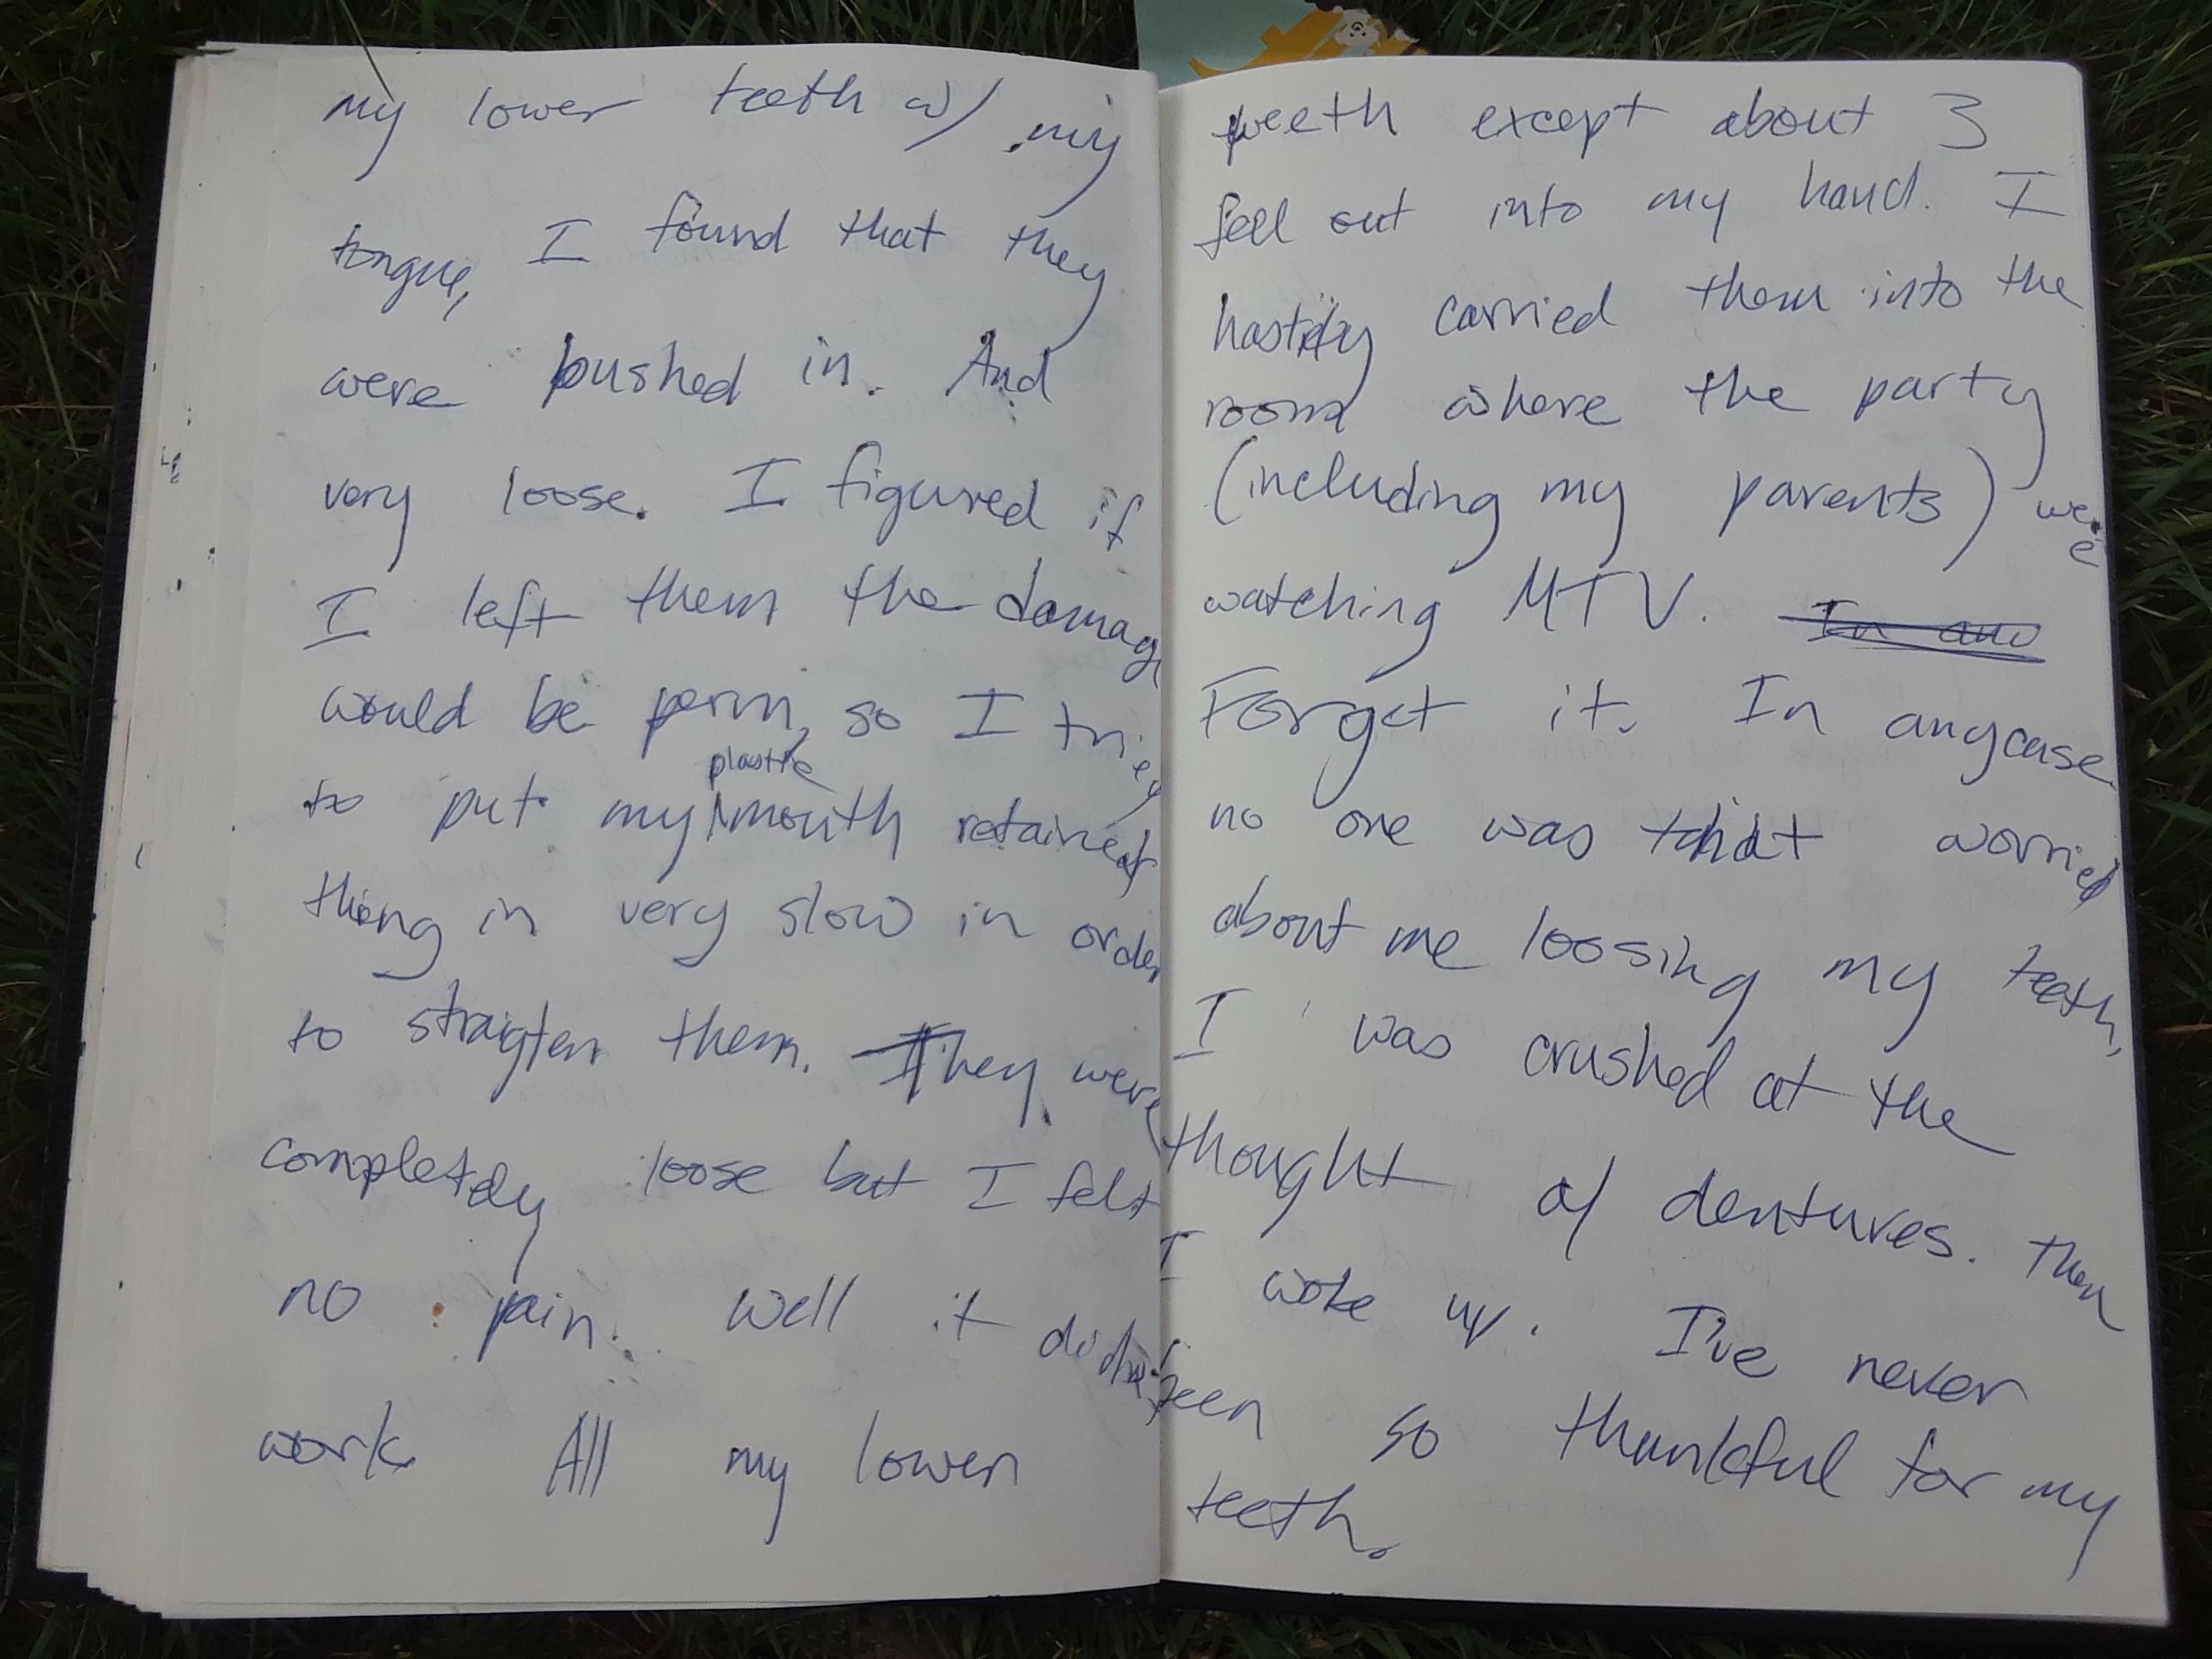 my lower teeth w/ my
tongue, I found that they
were pushed in. And
very loose. I figured if
I left them the damage
would be perm, so I tried
plastic
to put my mouth retainer
thing in very slow in order
to straigten them. They were
completely loose but I felt
no pain. Well it didn't
work. All my lower
teeth except about 3
fell out into my hand. I
hastily carried them into the
room where the party
(including my parents) were
watching MTV. In
Forget it. In anycase
no one was that worried
about me loosing my teeth,
I was crushed at the
thought of dentures. Then
I woke up. I've never
been so thankful for my
teeth.